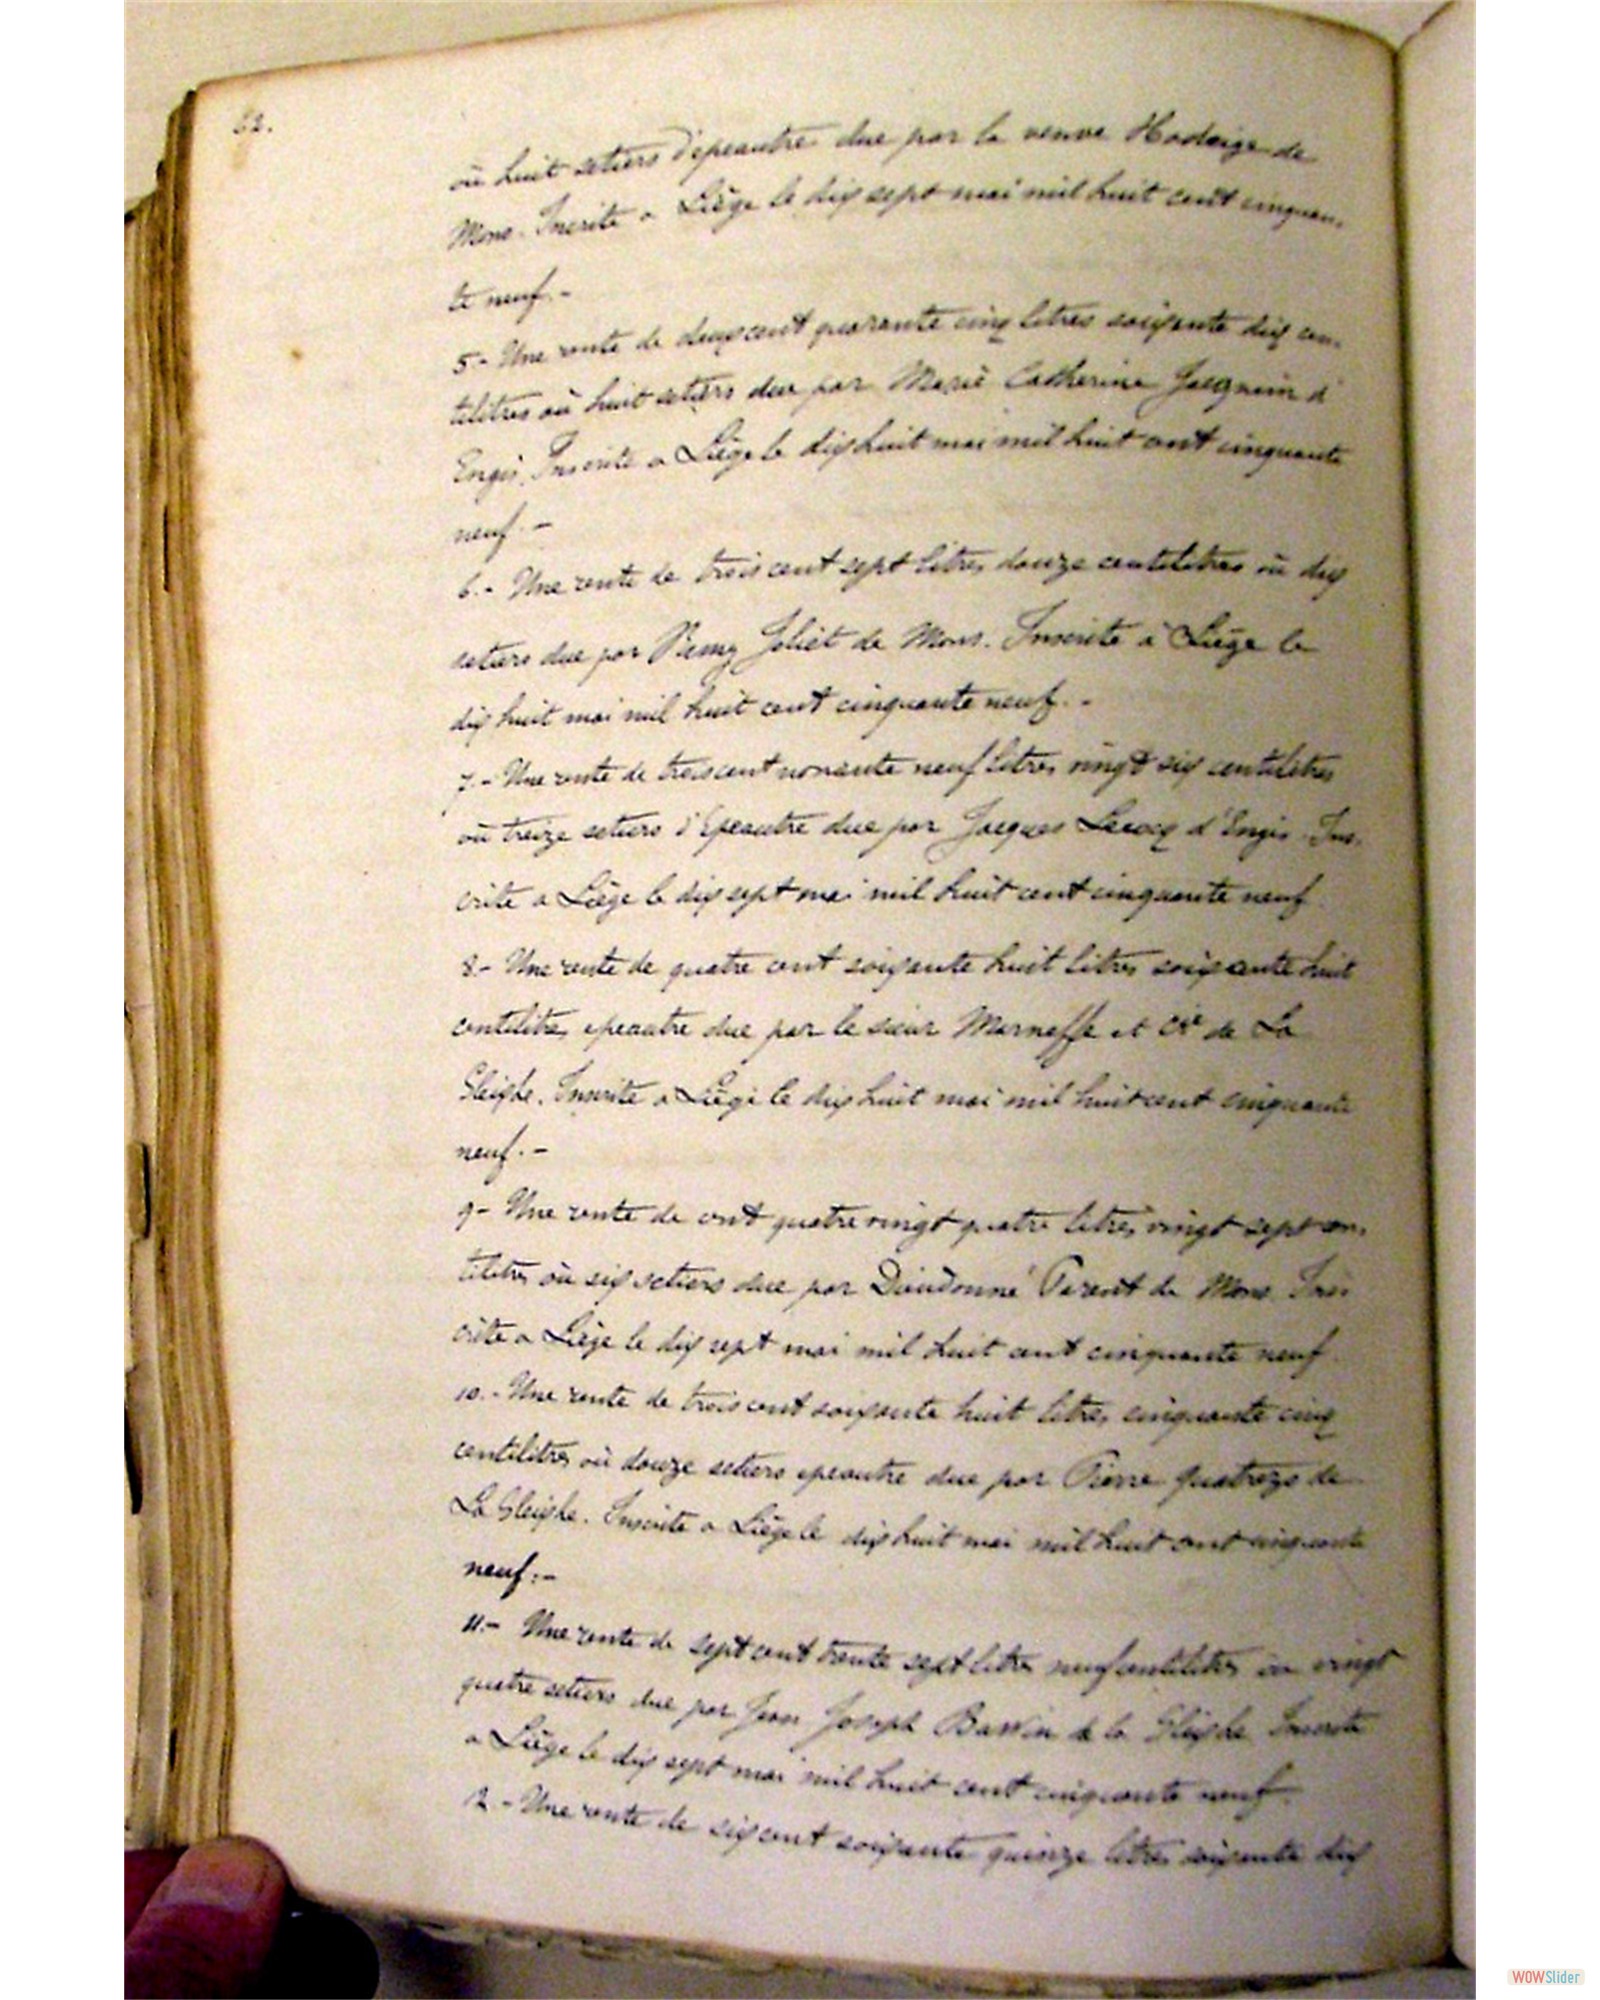 62.
où huit setiers d'epeautre due par la veuve Hodeige de
Mons. Inscrite a Liège le dix sept mai mil huit cent cinquan-
te neuf.-
5.- Une rente de deux cent quarante cinq litres soixante dix cen-
tilitres où huit setiers due par Marie Catherine Jacquemin d'
Engis. Inscrite a Liège le dix huit mai mil huit cent cinquante
neuf.-
6.- Une rente de trois cent sept litres douze centilitres où dix
setiers due par Remy Joliet de Mons. Inscrite à Liège le
dix huit mai mil huit cent cinquante neuf.-
7.- Une rente de trois cent nonante neuf litres vingt six centilitres
où treize setiers d'Epeautre due par Jacques Lerocq d'Engis Ins-
crite a Liège le dix sept mai mil huit cent cinquante neuf
8.- Une rente de quatre cent soixante huit litres soixante huit
centilitres epeautre due par le sieur Marneffe et de La
Gleixhe. Inscrite a Liège le dix huit mai mil huit cent cinquante
neuf.-
9- Une rente de cent quatre vingt quatre litres vingt sept cen-
tilitres où six setiers due par Dieudonné Parent de Mons Ins-
crite a Liège le dix sept mai mil huit cent cinquante neuf
10.- Une rente de trois cent soixante huit litres cinquante cinq
centilitres où douze setiers epeautre due par Pierre de
La Gleixhe. Inscrite a Liège le dix huit mai mil huit cent cinquante
neuf:-
11.- Une rente de sept cent trente sept litres neuf centilitres ou vingt
quatre setiers due par Jean Joseph Bawin de la Gleixhe Inscrite
a Liège le dix sept mai mil huit cent cinquante neuf.
12.- Une rente de six cent soixante quinze litres soixante dix
WOWSlider